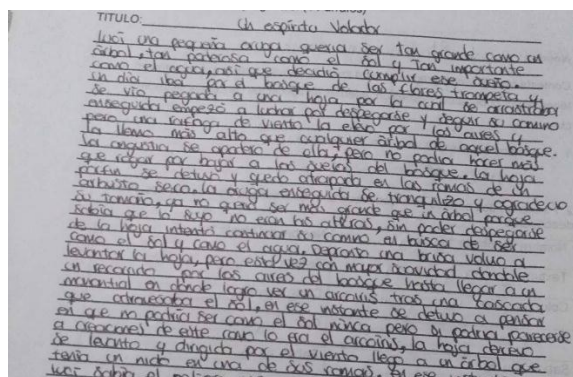 TITULO: Un espíritu Volador
Luci una pequeña oruga quería ser tan grande como un
árbol, tan poderosa como el sol y tan importante
como el agua, así que decidió cumplir ese sueño.
un día iba por el bosque de las flores trompeta y
se vio pegada a una hoja por la cual se arrastraba
enseguida empezó a luchar por despegarse y seguir su camino
pero una ráfaga de viento la elevo por los aires y
la llevo más alto que cualquier árbol de aquel bosque.
la angustia se apodero de ella, pero no podía hacer más
que rogar por bajar a los suelos del bosque. la hoja
porfin se detuvo y quedo atrapada en las ramas de un
arbusto seco. la oruga enseguida se tranquilizo y agradecio
su tamaño, ya no quería ser más grande que un árbol porque
sabía que lo suyo no eran las alturas, sin poder despegarse
de la hoja intento continuar su camino en busca de ser
como el sol y como el agua. Depronto una brisa volvio a
levantar la hoja, pero esta vez con mayor suavidad dandole
un recorrido por los aires del bosque hasta llegar a un
manantial en donde logro ver un arcoiris tras una cascada
que atravesaba el sol, en ese instante se detuvo a pensar
en que no podría ser como el sol nunca pero si podría parecerse
a creaciones de este como lo era el arcoiris, la hoja denuevo
se levanto y dirigida por el viento llego a un árbol que
tenía un nido en una de sus ramas. En ese
luci sabía el